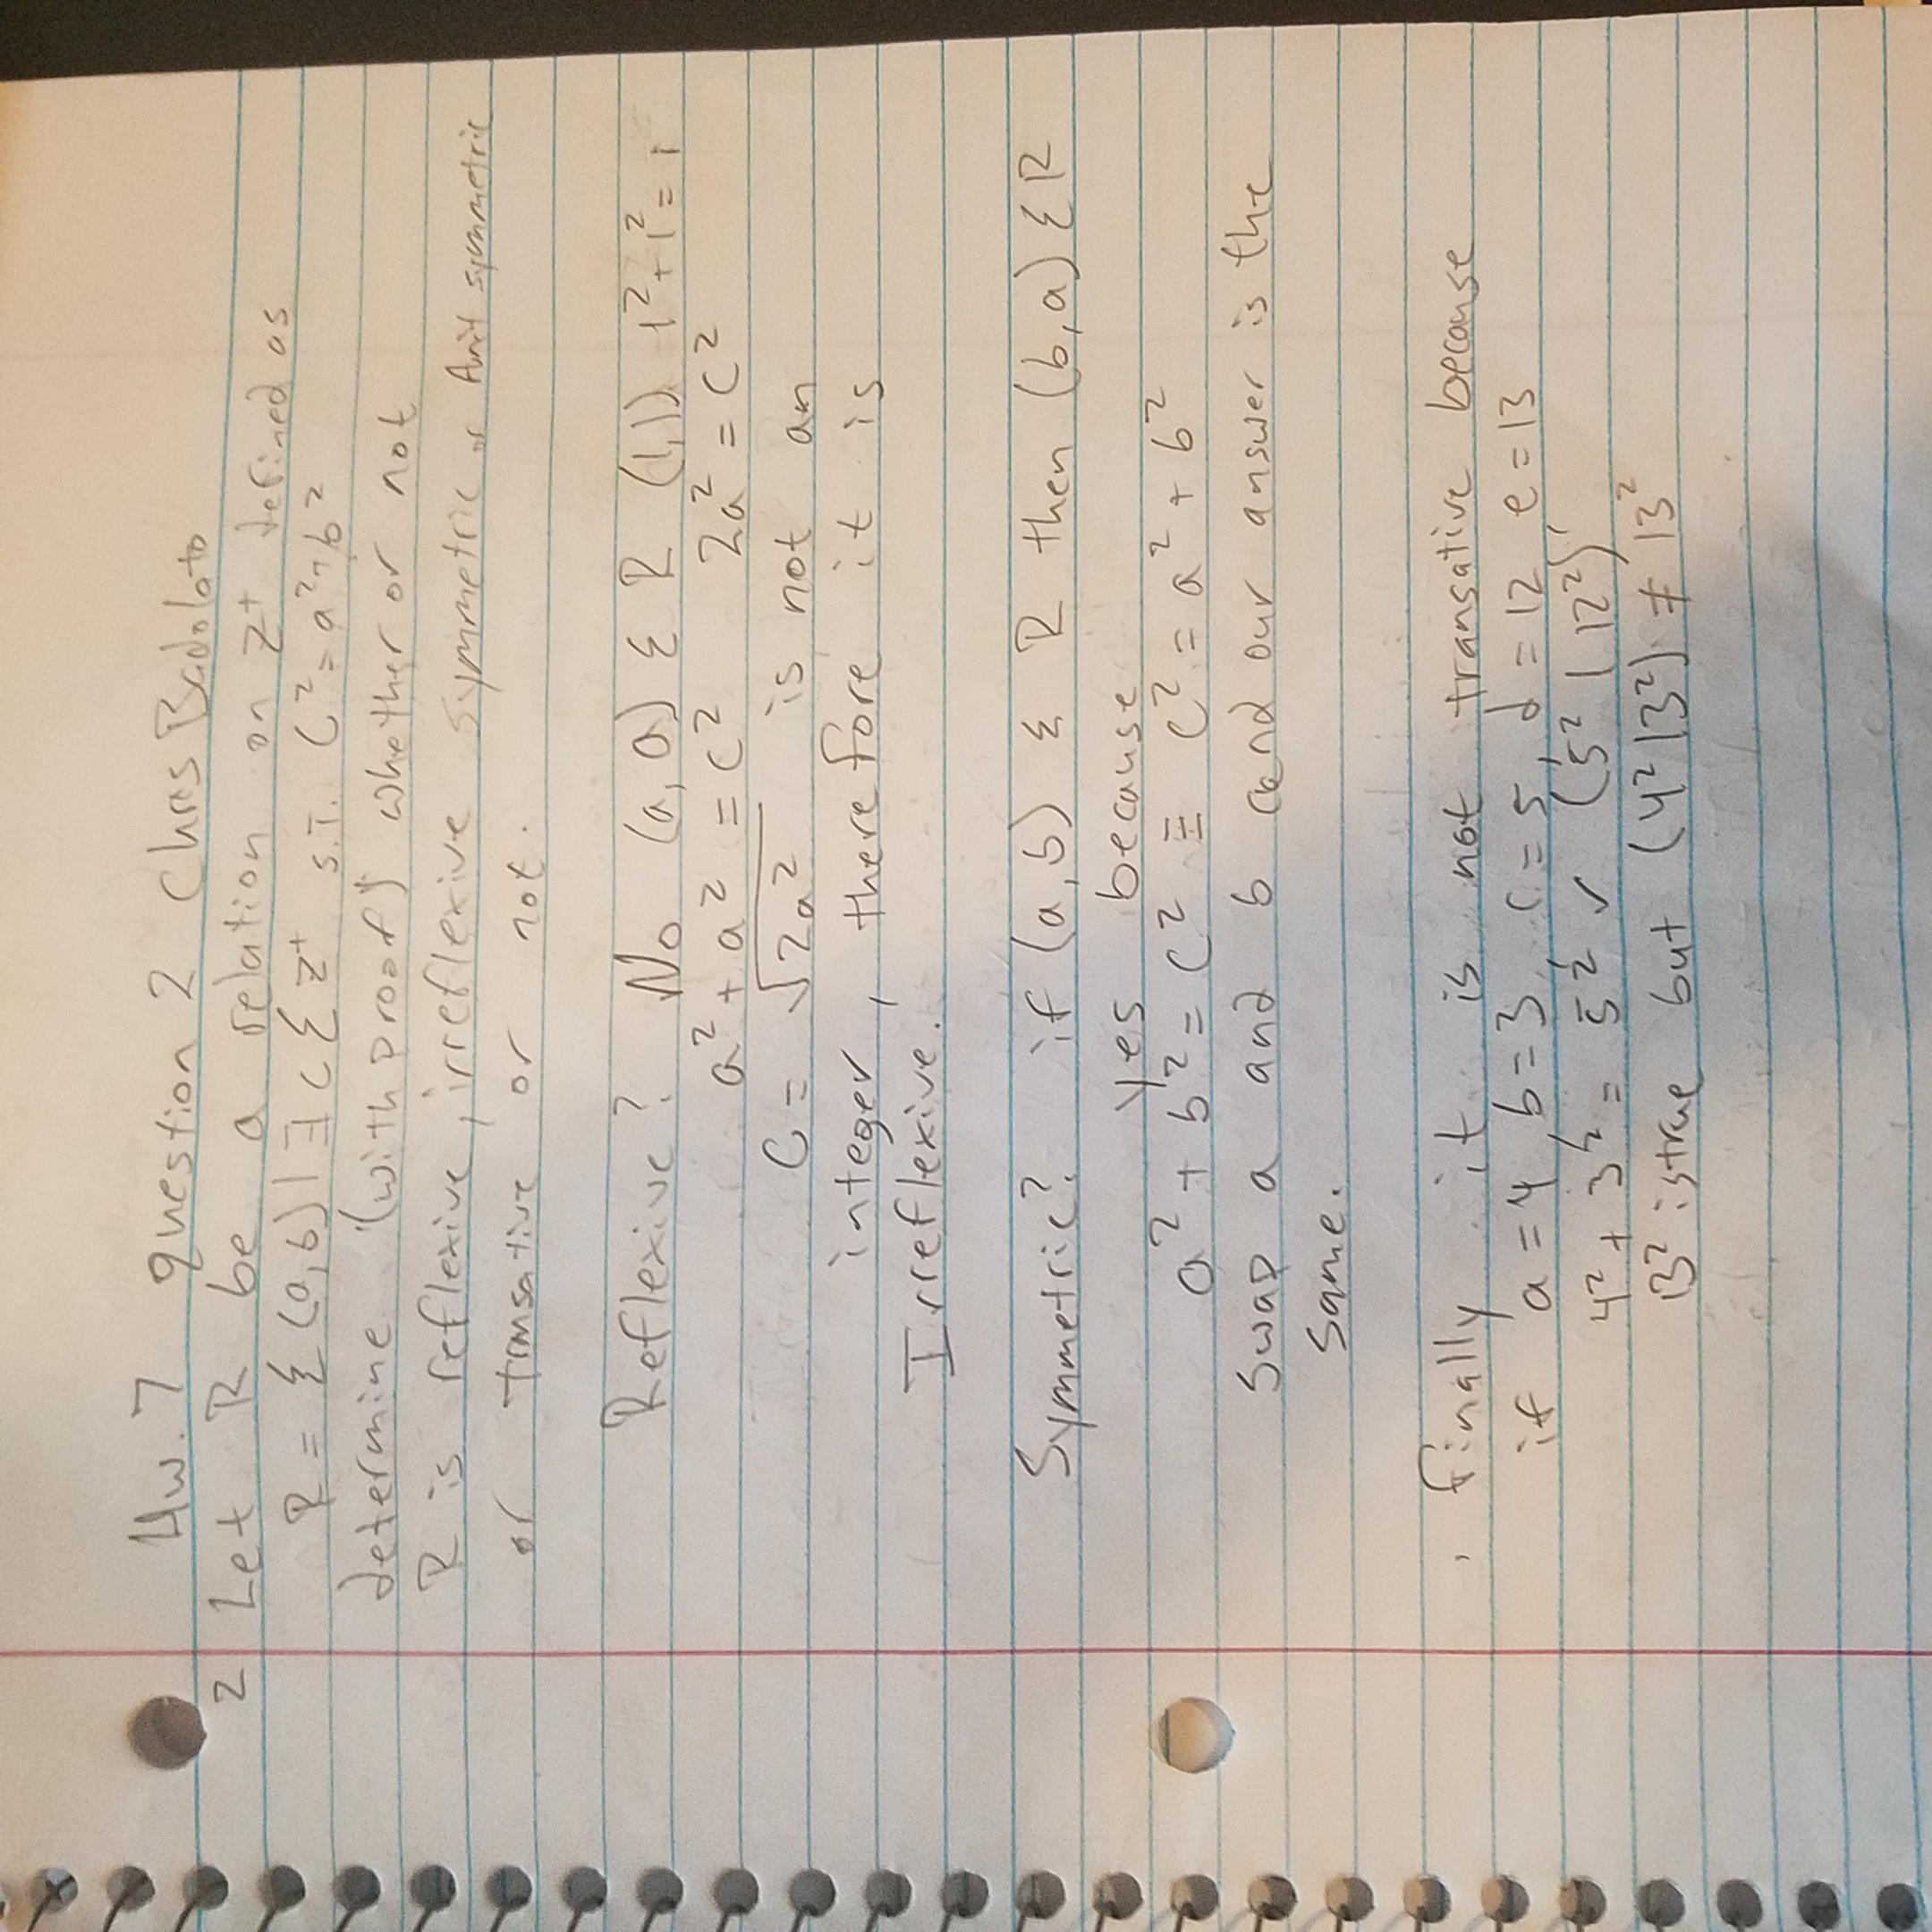 Hw. 7 question 2 Chris Badolato
2 Let R be a relation on Z⁺ defined as
R = { (a,b) | ∃ c ∈ Z⁺ s.T. C² = a² + b²
determine (with proof) whether or not
R is reflexive, irreflexive symmetric or Anit symmetric
or transative or not.
Reflexive? No (a, a) ∈ R (1,1) 1² + 1² = 1
a² + a² = c² 2a² = c²
C = √2a² is not an
integer, therefore it is
Irreflexive.
Symmetric? if (a, b) ∈ R then (b, a) ∈ R
yes because
a² + b² = c² ≡ c² = a² + b²
Swap a and b and our answer is the
same.
finally it is not transative because
if a = 4, b = 3, c = 5, d = 12, e = 13
4² + 3² = 5² ✓ (5² | 12²)
13² is true but (4² | 3²) ≠ 13²